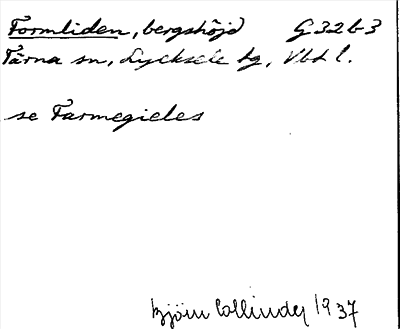 Formliden, bergshöjd G32b3
Tärna sn, Lycksele lg, Vbt l.
se Farmegieles
Björn Collinder 1937